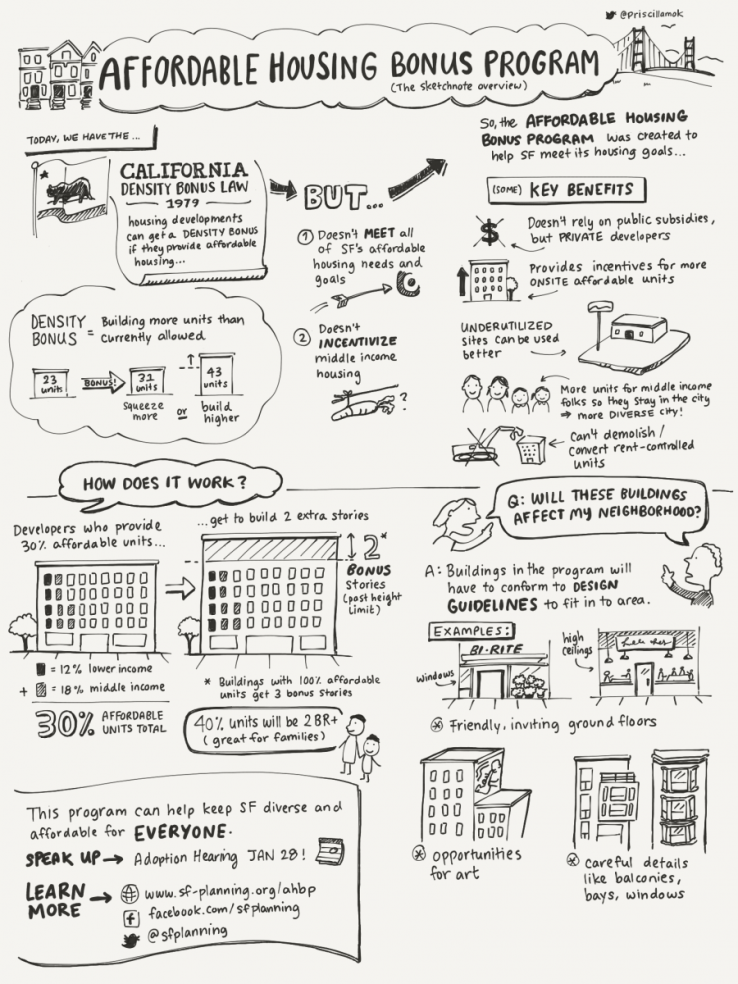 @priscillamok
AFFORDABLE HOUSING BONUS PROGRAM
(The sketchnote overview)
TODAY, WE HAVE THE ...
CALIFORNIA
DENSITY BONUS LAW
1979
housing developments
can get a DENSITY BONUS
if they provide affordable
housing...
BUT...
① Doesn't MEET all
of SF's affordable
housing needs and
goals
② Doesn't
INCENTIVIZE
middle income
housing
?
So, the AFFORDABLE HOUSING
BONUS PROGRAM was created to
help SF meet its housing goals...
(SOME) KEY BENEFITS
$
Doesn't rely on public subsidies,
but PRIVATE developers
Provides incentives for more
ONSITE affordable units
UNDERUTILIZED
sites can be used
better
More units for middle income
folks so they stay in the city
→ more DIVERSE city!
Can't demolish /
convert rent-controlled
units
DENSITY
BONUS
= Building more units than
currently allowed
23
units
BONUS!
31
units
43
units
squeeze
more
or
build
higher
HOW DOES IT WORK?
Developers who provide
30% affordable units...
...get to build 2 extra stories
2*
BONUS
Stories
(past height
limit)
= 12% lower income
+ = 18% middle income
30% AFFORDABLE
UNITS TOTAL
* Buildings with 100% affordable
units get 3 bonus stories
40% units will be 2 BR+
(great for families)
Q: WILL THESE BUILDINGS
AFFECT MY NEIGHBORHOOD?
A: Buildings in the program will
have to conform to DESIGN
GUIDELINES to fit in to area.
EXAMPLES:
windows
BI-RITE
high
ceilings
* Friendly, inviting ground floors
* opportunities
for art
* careful details
like balconies,
bays, windows
This program can help keep SF diverse and
affordable for EVERYONE.
SPEAK UP → Adoption Hearing JAN 28!
LEARN
MORE →
www.sf-planning.org/ahbp
facebook.com/sfplanning
@sfplanning